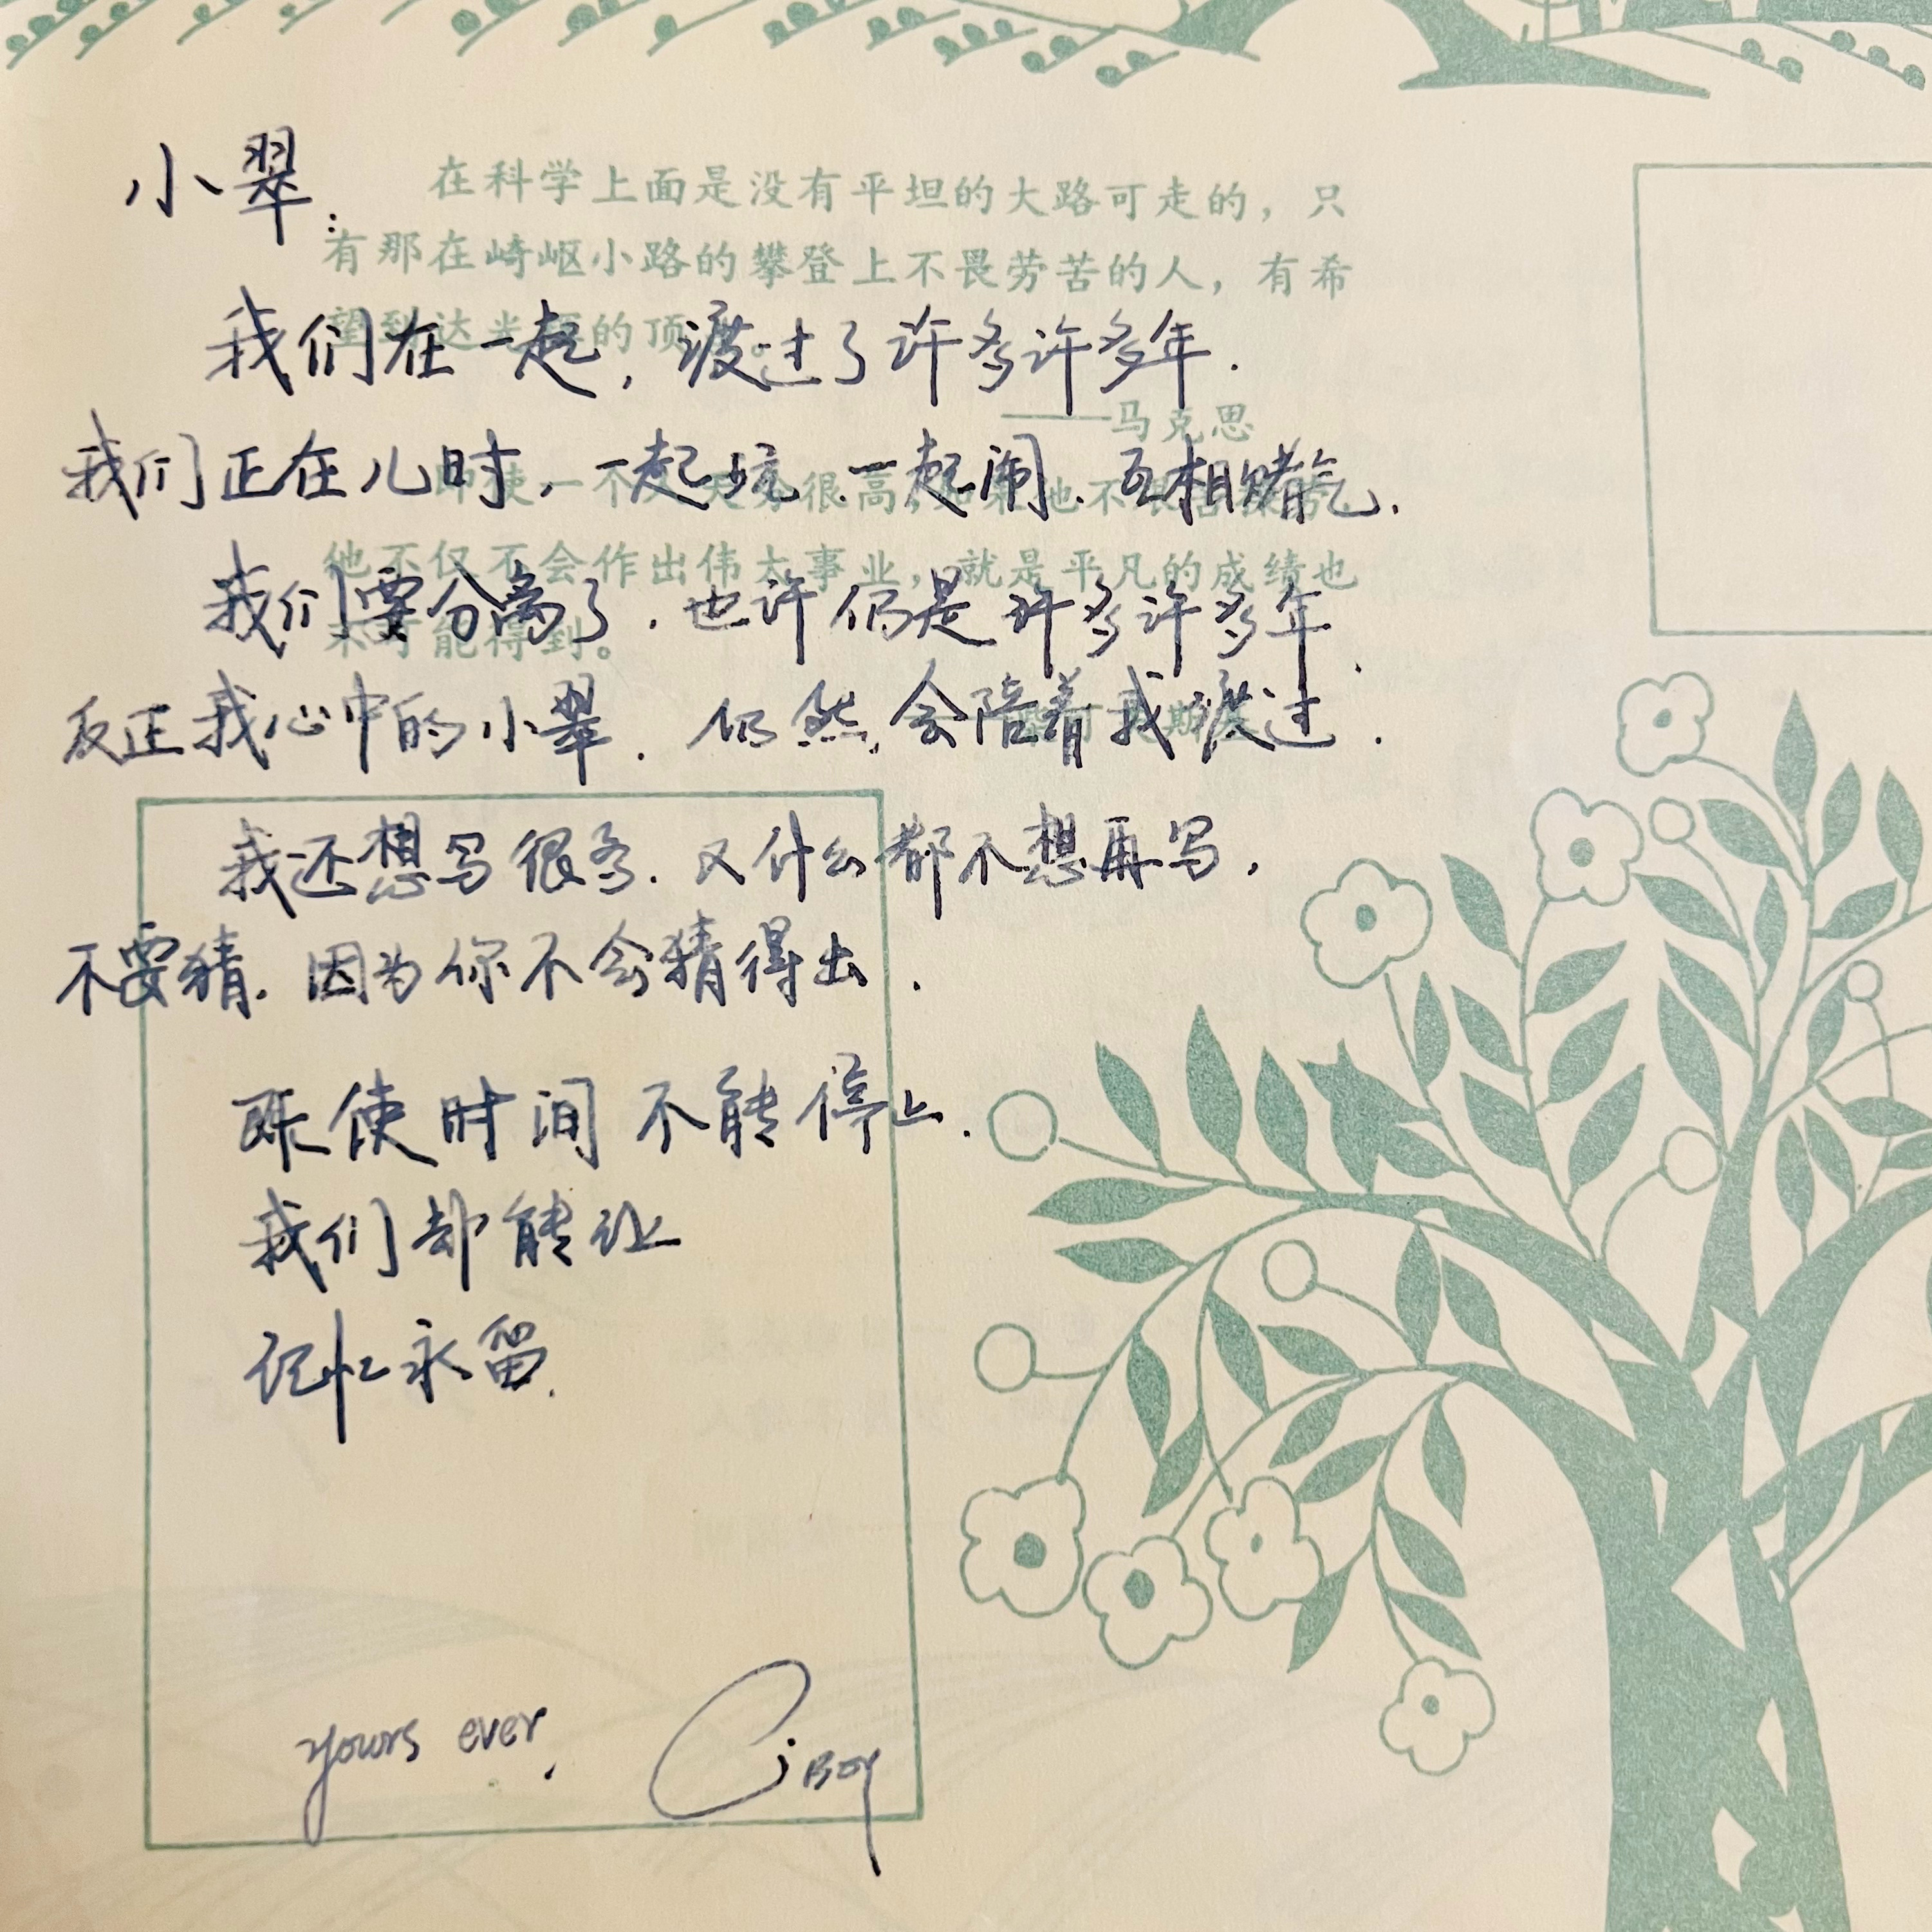 小翠：
在科学上面是没有平坦的大路可走的，只
有那在崎岖小路的攀登上不畏劳苦的人，有希
望到达光 的顶
我们在一起，渡过了许多许多年.
——马克思
我们正在儿时，一起玩.一起闹.互相赌气.
即使一个 很高， 他不
他不仅不会作出伟大事业，就是平凡的成绩也
我们要分离了.也许仍是许多许多年.
不可能得到。
反正我心中的小翠.仍然会陪着我渡过.
斯
我还想写很多.又什么都不想再写，
不要猜.因为你不会猜得出.
既使时间不能停止.
我们却能让
记忆永留.
yours ever,
CjBoy